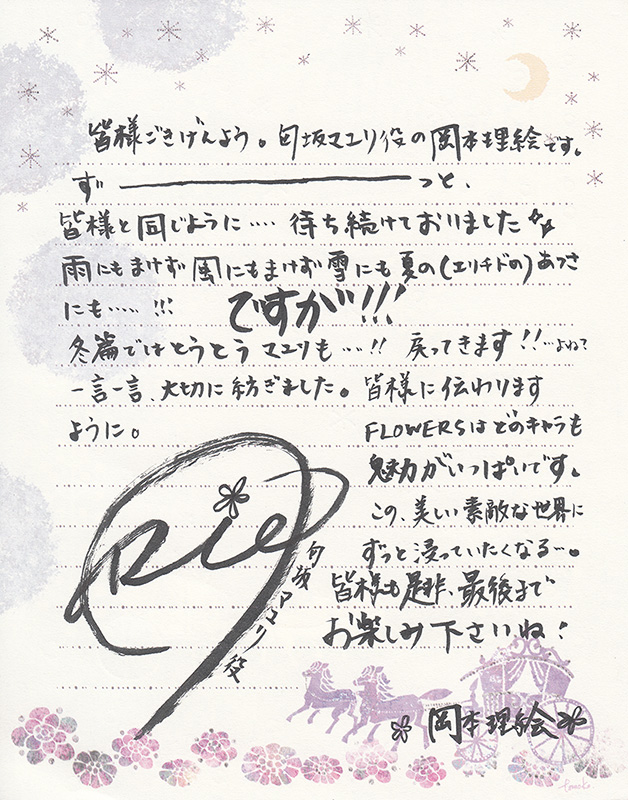 皆様ごきげんよう。匂坂マユリ役の岡本理絵です。
ず――――――っと、
皆様と同じように…. 待ち続けておりました
雨にもまけず風にもまけず雪にも夏の(エリチドの)あつさ
にも….. !!! ですが!!!
冬篇ではとうとうマユリも…!! 戻ってきます!!…よね?
一言一言、大切に紡ぎました。皆様に伝わります
ように。
FLOWERSはどのキャラも
魅力がいっぱいです。
この、美しい素敵な世界に
ずっと浸っていたくなる…。
皆様も是非、最後まで
お楽しみ下さいね!
Rie
匂坂マユリ役
岡本理絵